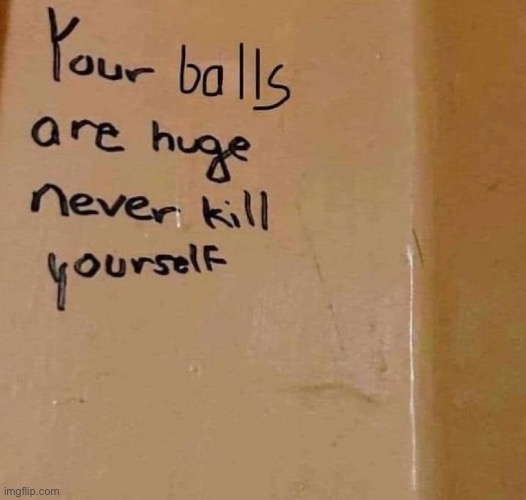 Your balls
are huge
never kill
yourself
imgflip.com